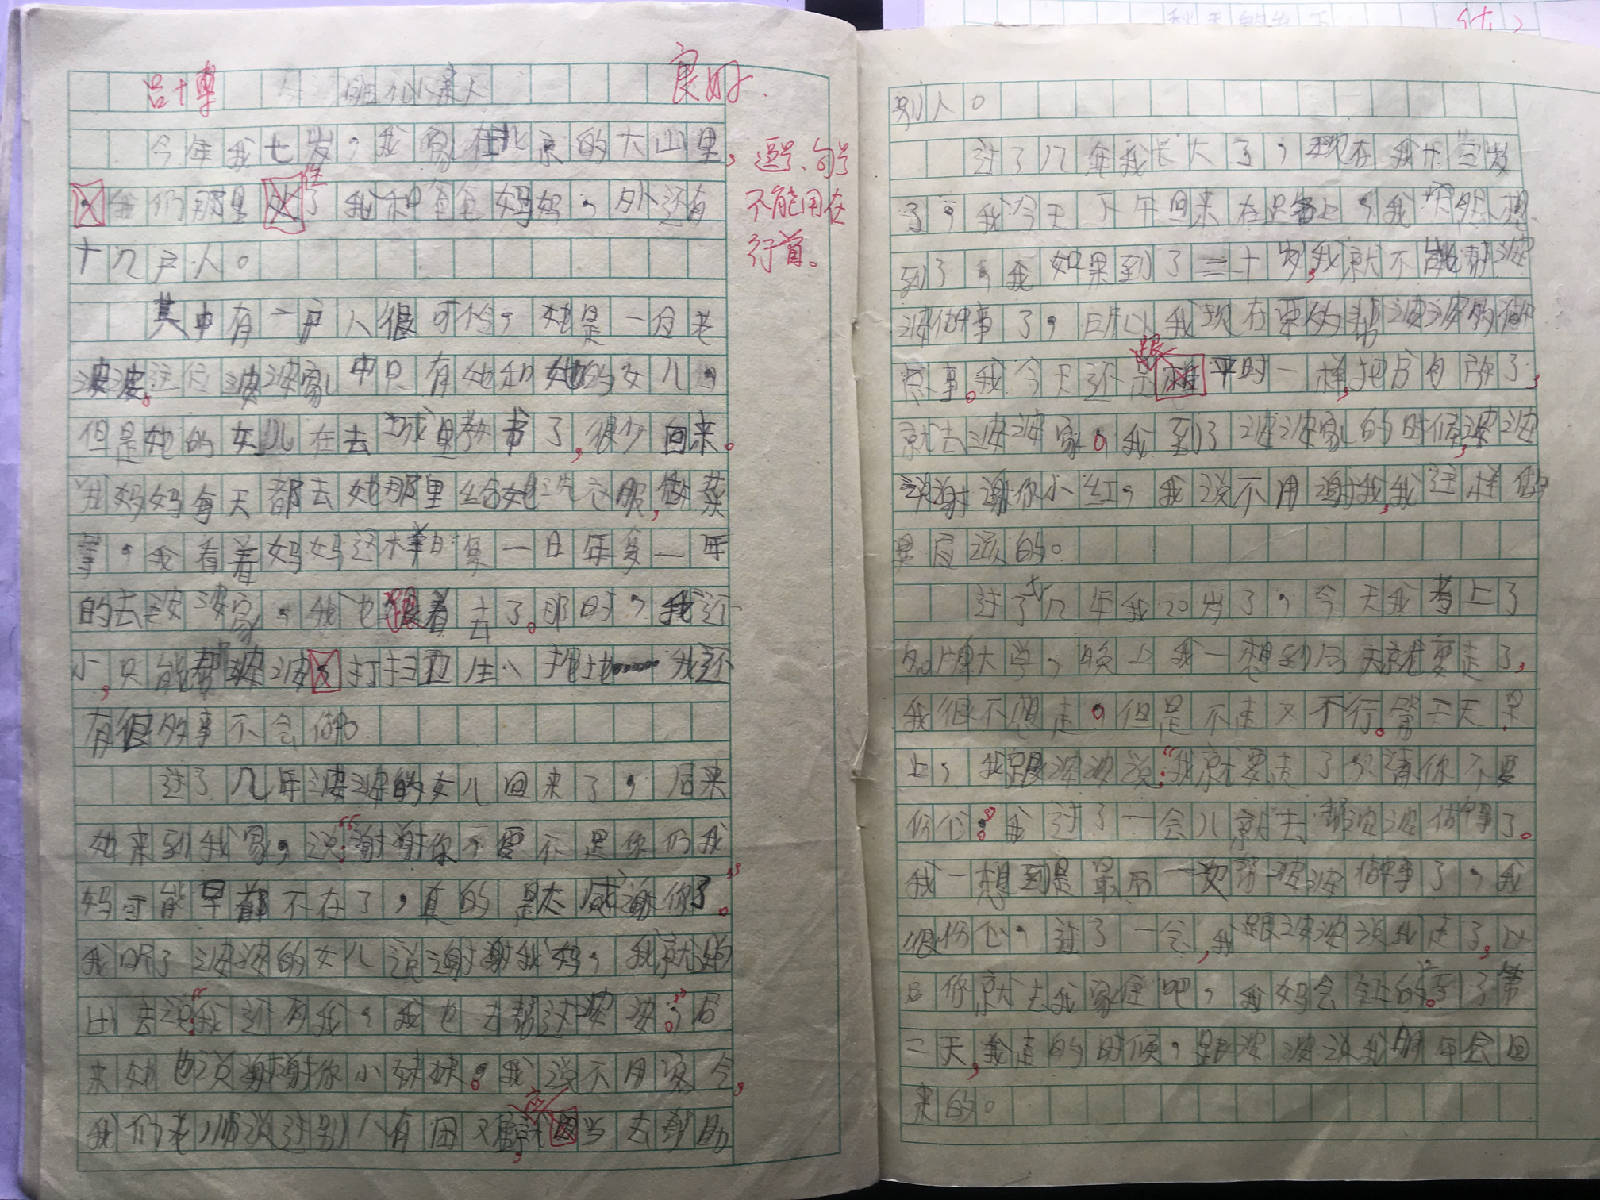 吕十革
良好.
今年我七岁，我家在北京的大山里，
我们那里住了我和爸爸妈妈，外还有
十几户人。
逗号、句号
不能用在
行首。
其中有一户人很可怜，她是一白老
波波。这位波波家中只有她和她的女儿，
但是她的女儿在去城里教书了，很少回来。
我妈妈每天都去她那里给她洗衣服，做菜
等，我看着妈妈这样日复一日年复一年
的去波波家，我也跟着去了。那时，我还
小，只能帮波波打扫卫生、拖地 我还
有很多事不会做
过了几年波波的女儿回来了，后来
她来到我家，说“谢谢你，要不是你们我
妈可能早都不在了，真的是太感谢你了。”
我听了波波的女儿说谢谢我妈，我就跑
出去说“我还有我，我也去帮过波波。”后
来她也说谢谢你小妹妹。我说不用客气，
我们老师说过别人有困难应当去帮助
别人。
过了几年我长大了，现在我十三岁
了，我今天下午回来在路上，我突然想
到了，我如果到了二十岁，我就不能帮波
波做事了，所以我现在要多帮波波多做
点事。我今天还是跟平时一样，把书包放了，
就去波波家。我到了波波家的时候，波波
说谢谢你小红，我说不用谢我，我这样做
是应该的。
过了几年我20岁了，今天我考上了
名牌大学，晚上我一想到后天就要走了，
我很不想走。但是不走又不行。第二天早
上，我跟波波说：“我就要走了，请你不要
伤心。”我过了一会儿就去帮波波做事了。
我一想到是最后一次帮波波做事了，我
很伤心，过了一会，我跟波波说我走了，以
后你就去我家住吧，我妈会 的。到了第
二天，我走的时候，跟波波说我明年会回
来的。